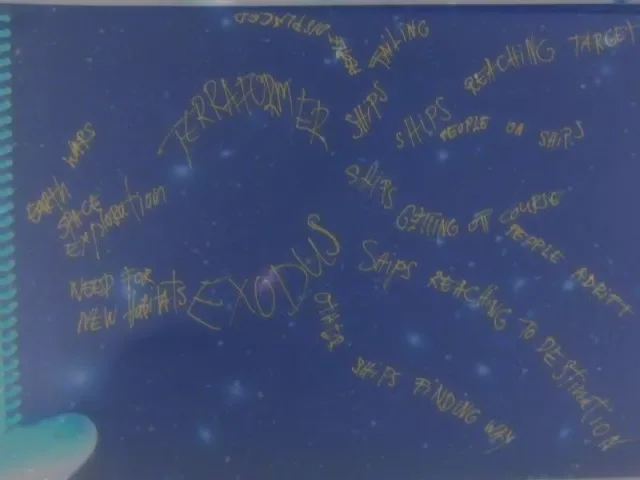 DISPLACED
TERRAFORMER
SHIPS
REACHING TARGET
SHIPS
PEOPLE ON SHIPS
EARTH WARS
SPACE
EXPLORATION
SHIPS GETTING OFF COURSE
PEOPLE ADRIFT
NEED FOR
NEW HABITATS
EXODUS
SHIPS REACHING TO DESTINATION
OTHER
SHIPS FINDING WAY